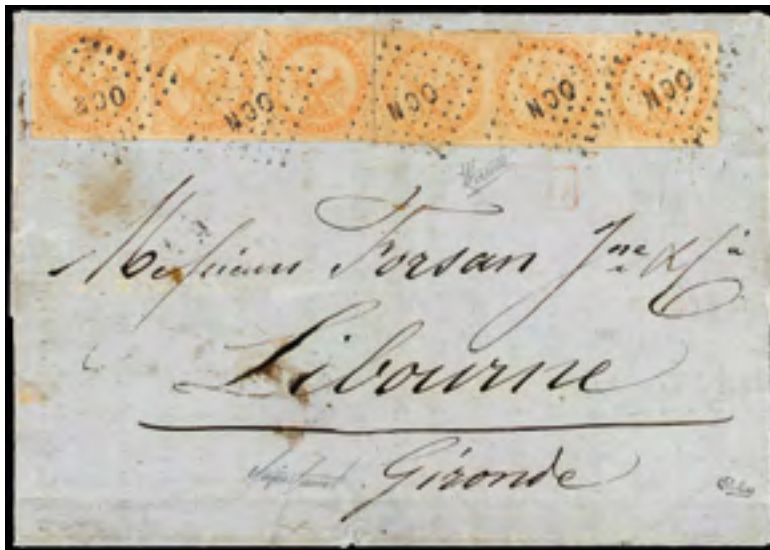 OCN OCN OCN OCN OCN
Messieurs Forsan Jne & Cie
Libourne
Gironde